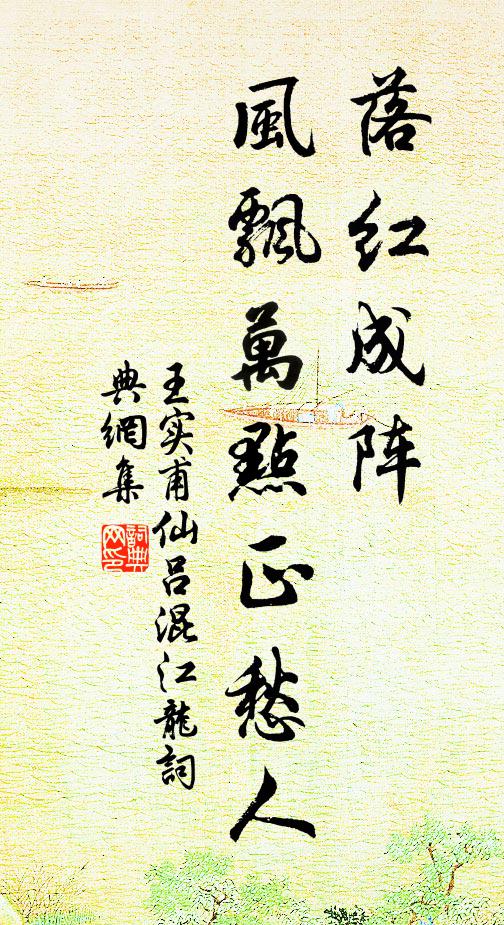 落红成阵
風飄萬點正愁人
王实甫仙吕混江龍詞
典網集
詞典
网印